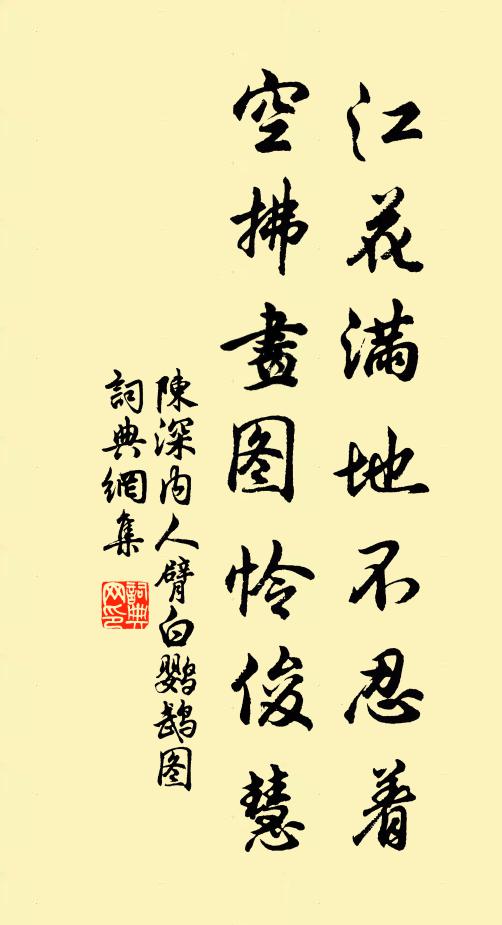 江花满地不忍着
空拂畫图怜俊慧
陳深内人臂白鹦鹉图
詞典網集
詞典
网印